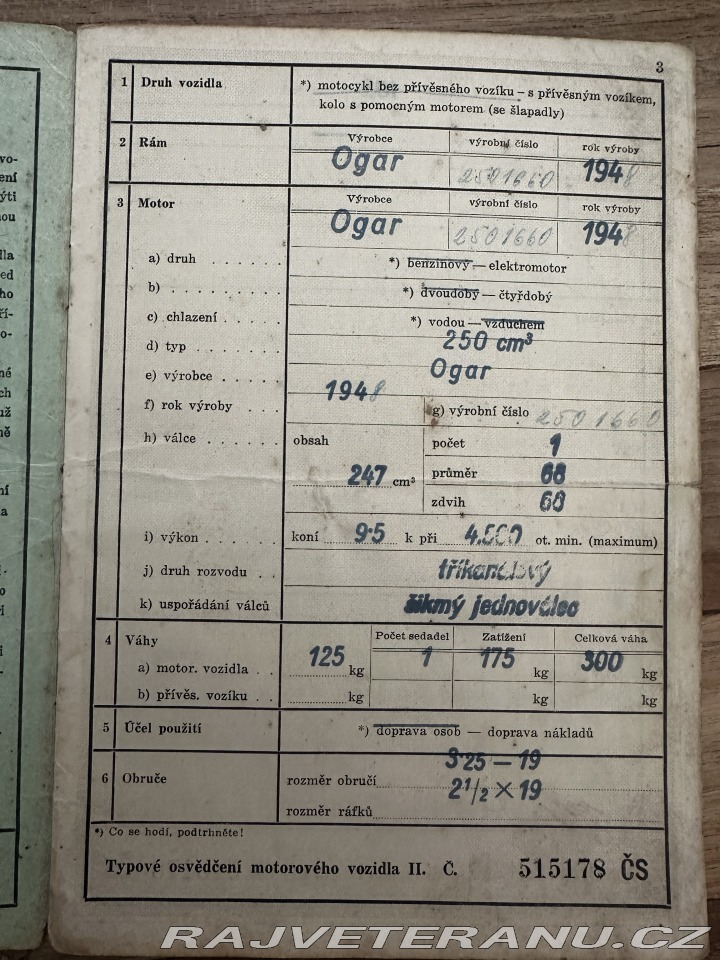 3
1 Druh vozidla *) motocykl bez přívěsného vozíku – s přívěsným vozíkem,
kolo s pomocným motorem (se šlapadly)
2 Rám Výrobce výrobní číslo rok výroby
Ogar 2501660 1948
3 Motor Výrobce výrobní číslo rok výroby
Ogar 2501660 1948
a) druh . . . . . . *) benzinový — elektromotor
b) . . . . . . . . . *) dvoudobý — čtyřdobý
c) chlazení . . . . . *) vodou — vzduchem
d) typ . . . . . . . 250 cm³
e) výrobce . . . . . Ogar
f) rok výroby . . . 1948 g) výrobní číslo 2501660
h) válce . . . . . . obsah počet 1
247 cm³ průměr 68
zdvih 68
i) výkon . . . . . koní 9·5 k při 4.500 ot. min. (maximum)
j) druh rozvodu . . tříkanálový
k) uspořádání válců šikmý jednoválec
4 Váhy Počet sedadel Zatížení Celková váha
a) motor. vozidla . . 125 kg 1 175 kg 300 kg
b) přívěs. vozíku . . kg kg kg
5 Účel použití *) doprava osob — doprava nákladů
6 Obruče rozměr obručí 3·25 — 19
rozměr ráfků 2½ × 19
*) Co se hodí, podtrhněte!
Typové osvědčení motorového vozidla II. Č. 515178 ČS
vo-
ení
ýti
ou
lla
ed
ho
ří-
o-
né
ch
už
ně
ní
a
RAJVETERANU.CZ